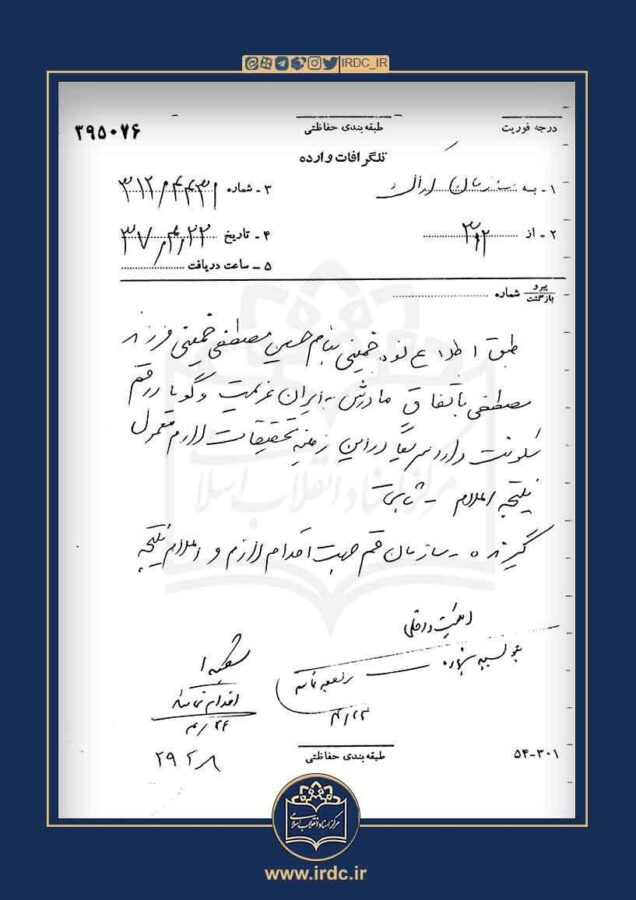 IRDC_IR
درجه فوریت
طبقه‌بندی حفاظتی
۳۹۵۰۷۶
تلگرافات وارده
۱- به سازمان اراک
۳- شماره ۳۱۲/۴۴۳۱
۲- از ۳۱۲
۴- تاریخ ۳۷/۴/۲۲
۵- ساعت دریافت
پیرو
بازگشت شماره
طبق اطلاع نوه خمینی بنام حسین مصطفی خمینی فرزند
مصطفی باتفاق مادرش به ایران عزیمت و گویا در قم
سکونت دارد سریعا در این زمینه تحقیقات لازم معمول
نتیجه اعلام - ثابتی
گیرنده - سازمان قم جهت اقدام لازم و اعلام نتیجه
امنیت داخلی
شعبه ۱
اقدام نمائید
۴/۲۴
۴/۲۳
طبقه‌بندی حفاظتی
۵۴-۳۰۱
مرکز اسناد انقلاب اسلامی
www.irdc.ir